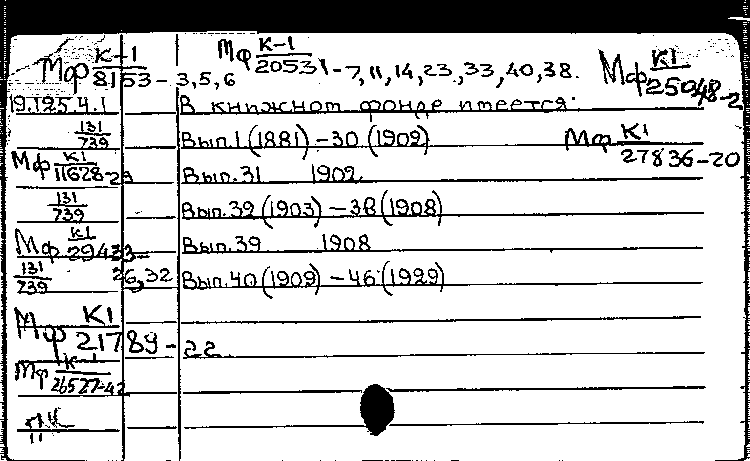 Мф К-1/8153 – 3,5,6 Мф К-1/20531 – 7,11,14,23,33,40,38. Мф К1/25048-2
19.125.4.1 В книжном фонде имеется:
131/739 Вып.1 (1881) – 30 (1902) Мф К1/27836-20
Мф К1/11628-29 Вып.31 1902
131/739 Вып.32 (1903) – 38 (1908)
Мф К1/29433- Вып.39 1908
131/739 26,32 Вып.40 (1909) – 46 (1929)
Мф К1/21789-22
Мф К-1/26527-42